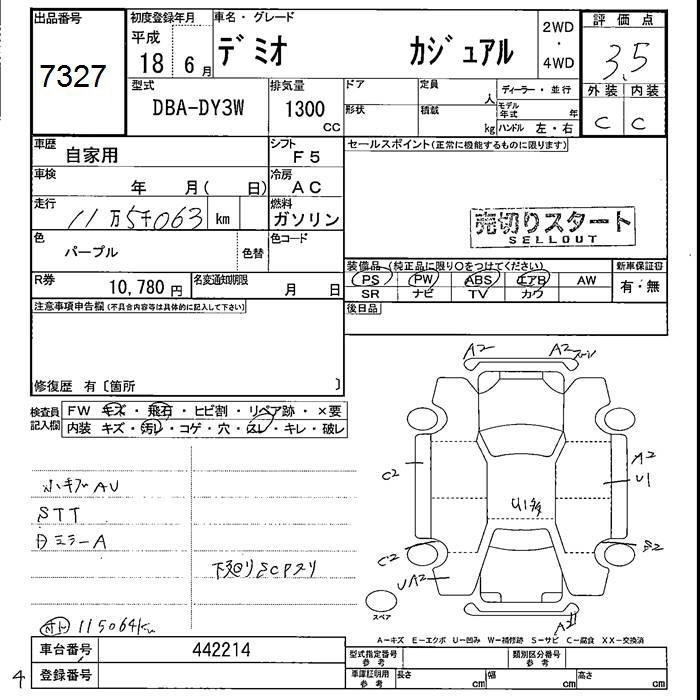 出品番号
7327
初度登録年月
平成
18 6 月
車名・グレード
デミオ カジュアル
2WD
・
4WD
評価点
3.5
外装 内装
C C
型式
DBA-DY3W
排気量
1300
CC
ドア
形状
定員
人
積載
kg
ディーラー・並行
モデル年式 年
ハンドル 左・右
車歴
自家用
シフト
F5
車検
年 月( 日)
冷房
AC
走行
11万5千063 km
燃料
ガソリン
色
パープル
色替
色コード
R券
10,780 円
名変通知期限
月 日
セールスポイント(正常に機能するものに限ります)
売切りスタート
SELLOUT
装備品(純正品に限り〇をつけてください)
新車保証書
PS PW ABS エアB AW
有・無
SR ナビ TV カワ
後日品
注意事項申告欄(不具合内容等は具体的に記入して下さい)
修復歴 有〔箇所 〕
検査員
記入欄
FW キズ・飛石・ヒビ割・リペア跡・×要
内装 キズ・汚レ・コゲ・穴・スレ・キレ・破レ
AU
STT
ミラーA
下廻りSCPスリ
115064km
A2 A2
C2
A2
U1
U1多
C2
S2
UA2
スペア
A-キズ E-エクボ U-凹み W-補修跡 S-サビ C-腐食 XX-交換済
車台番号
442214
登録番号
4
型式指定番号
参考
類別区分番号
参考
車庫証明用
参考
長さ cm
幅 cm
高さ cm